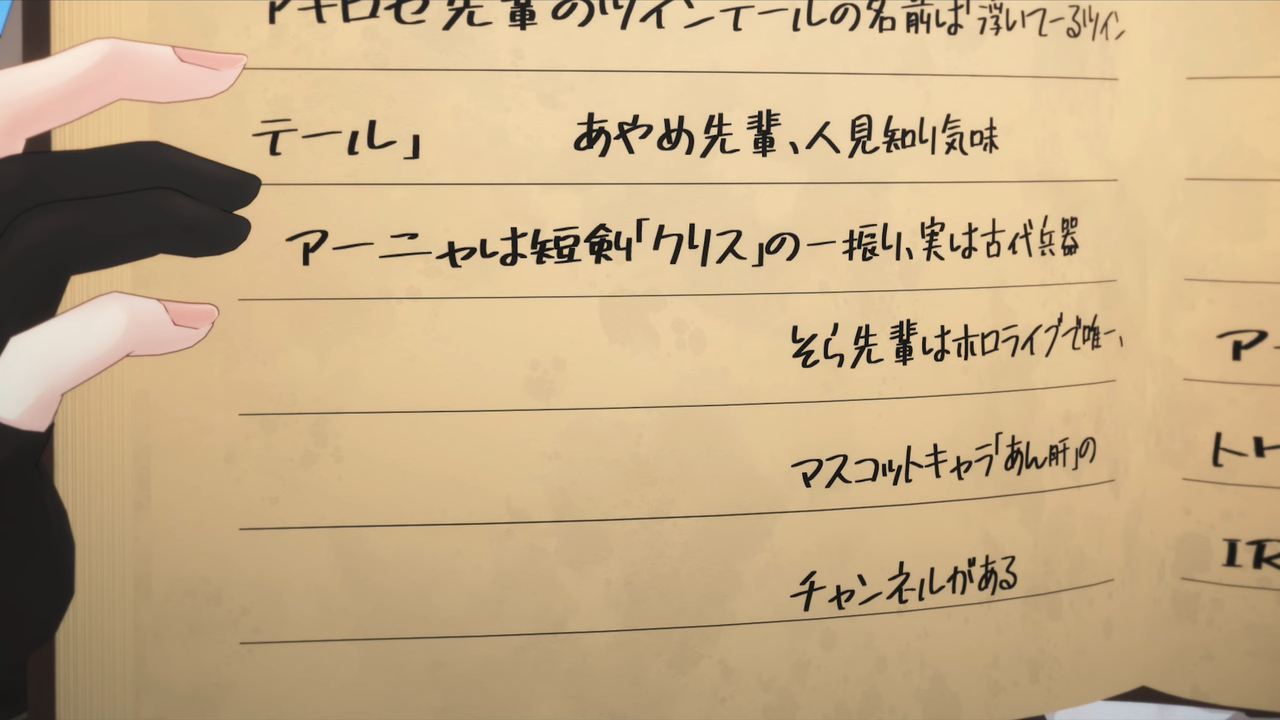 アキロゼ先輩のツインテールの名前は「浮いてーるツイン
テール」 あやめ先輩、人見知り気味
アーニャは短剣「クリス」の一振り、実は古代兵器
そら先輩はホロライブで唯一、
マスコットキャラ「あん肝」の
チャンネルがある
ア
トト
IR